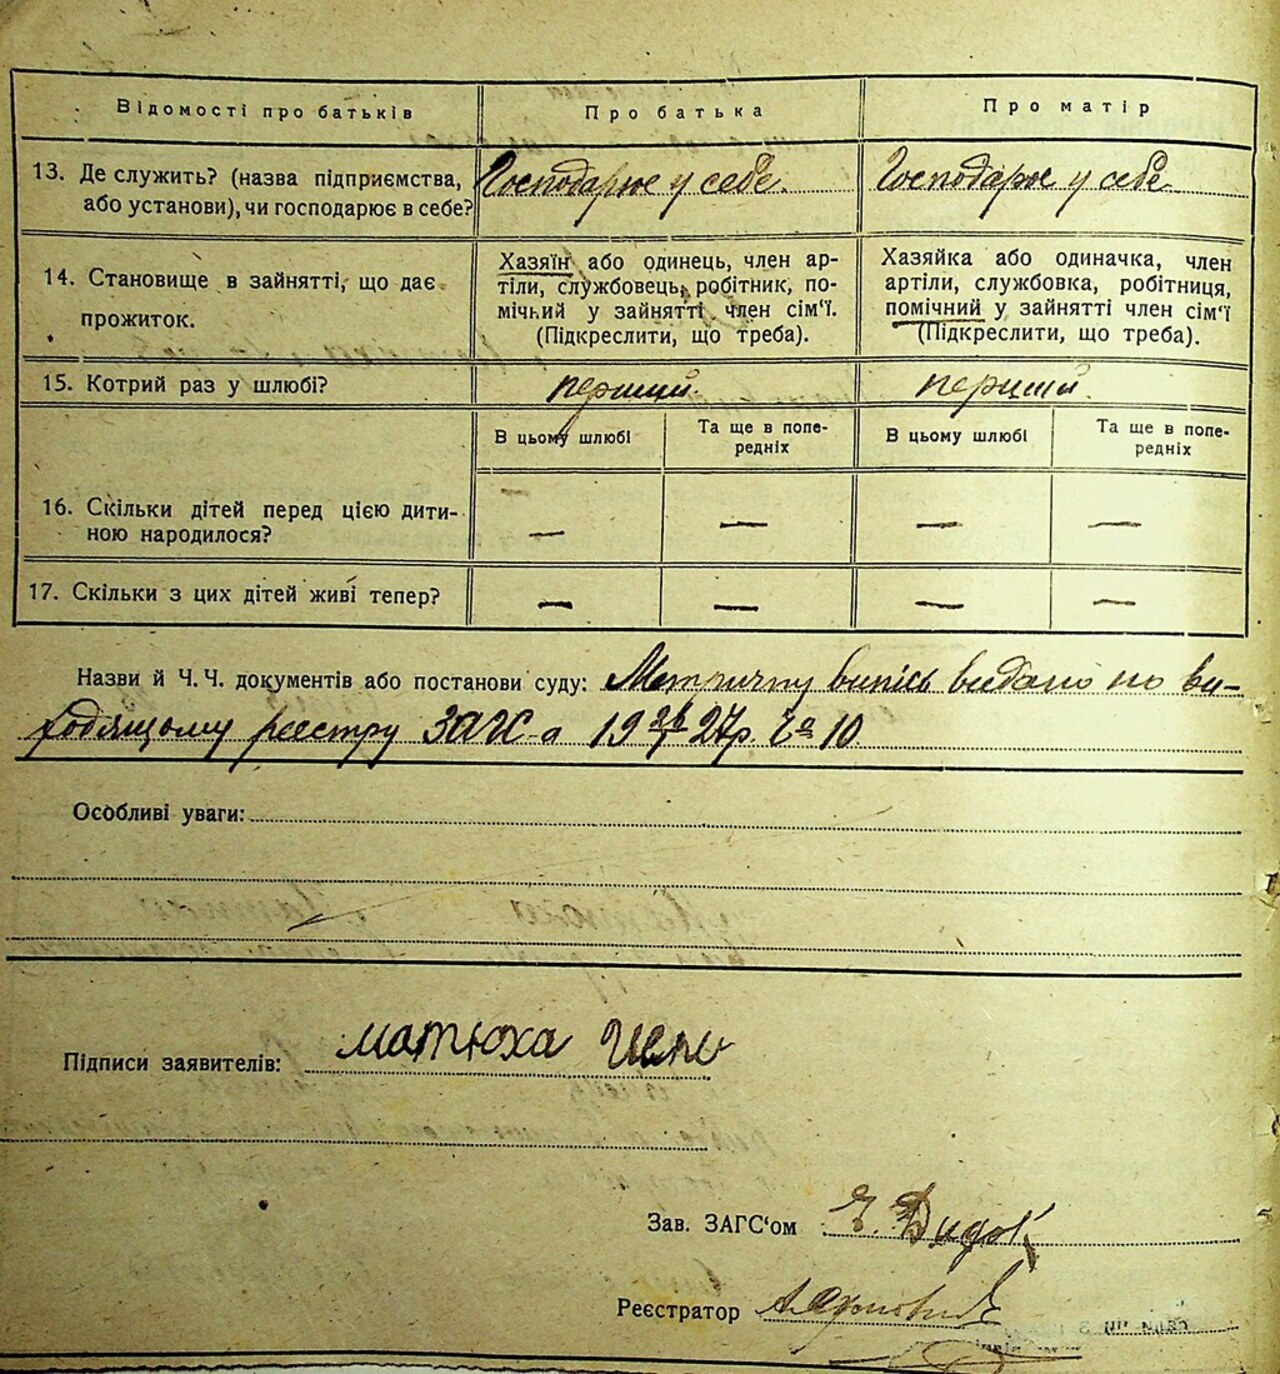 Відомості про батьків
Про батька
Про матір
13. Де служить? (назва підприємства,
або установи), чи господарює в себе?
Господарює у себе.
Господарює у себе
14. Становище в зайнятті, що дає
прожиток.
Хазяїн або одинець, член ар-
тіли, службовець, робітник, по-
мічний у зайнятті член сім'ї.
(Підкреслити, що треба).
Хазяйка або одиначка, член
артіли, службовка, робітниця,
помічний у зайнятті член сім'ї
(Підкреслити, що треба).
15. Котрий раз у шлюбі?
перший.
перший.
В цьому шлюбі
Та ще в попе-
редніх
В цьому шлюбі
Та ще в попе-
редніх
16. Скільки дітей перед цією дити-
ною народилося?
— — — —
17. Скільки з цих дітей живі тепер?
— — — —
Назви й Ч. Ч. документів або постанови суду: Метричну випісь видано по ви-
ходящому реєстру ЗАГС-а 19 26/27р. Ч 10.
Особливі уваги:
Підписи заявителів: матюха
Зав. ЗАГС'ом
Реєстратор